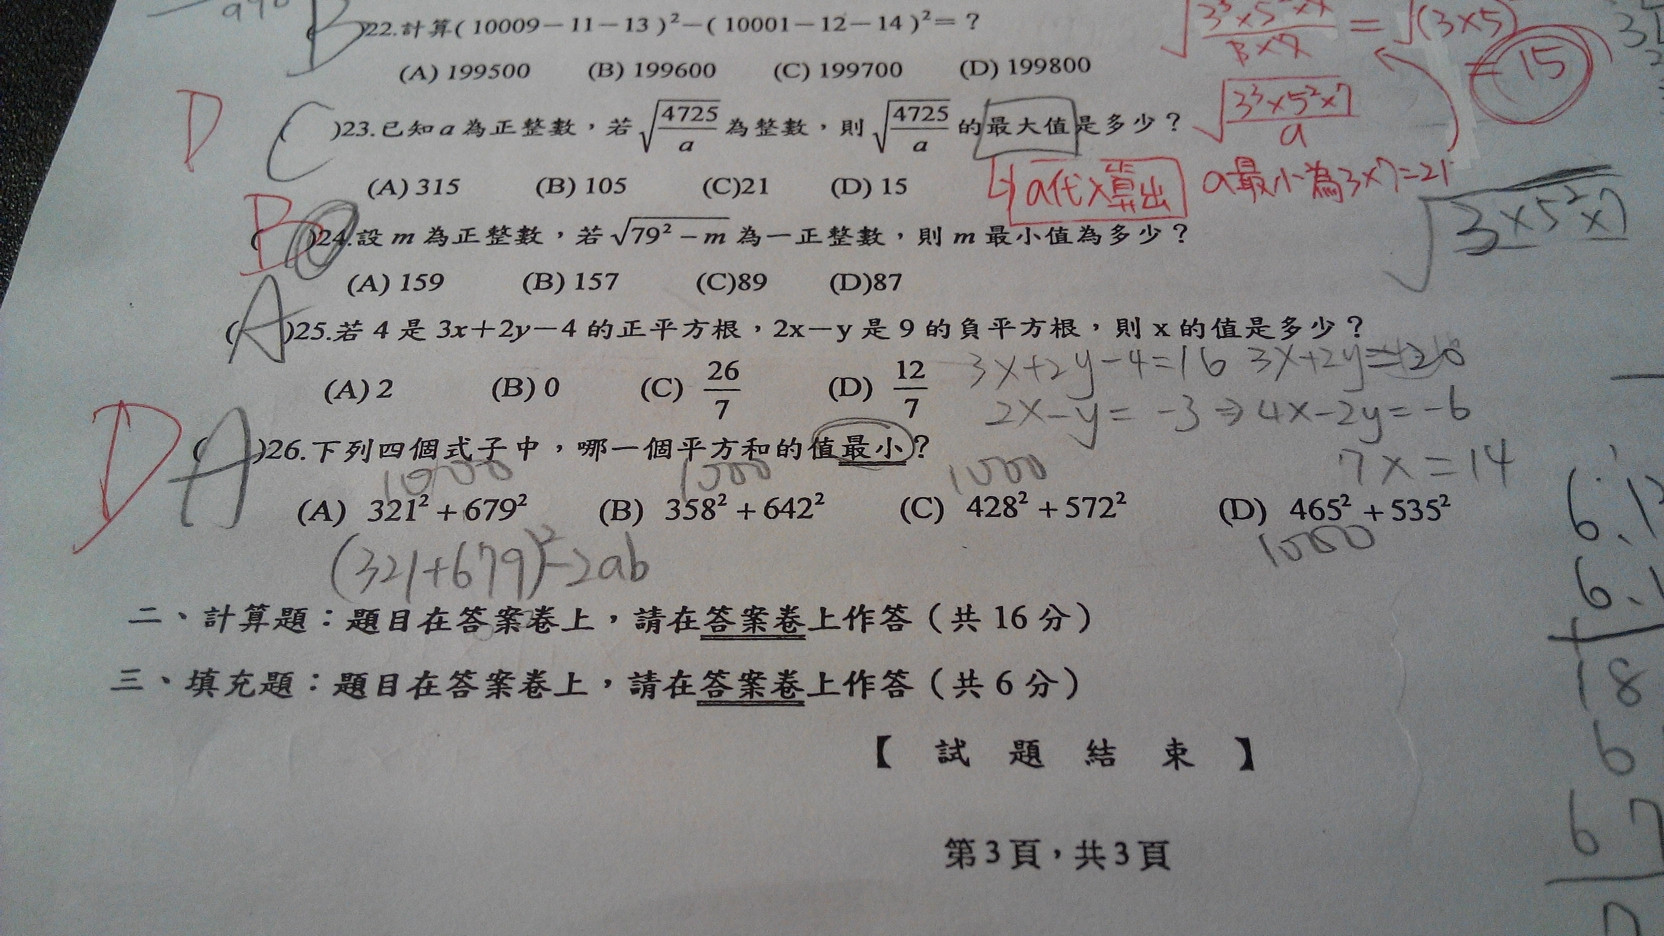 B )22.計算( 10009－11－13 )²－( 10001－12－14 )²＝？
(A) 199500 (B) 199600 (C) 199700 (D) 199800
= √(3×5)
= 15
D C ( )23.已知 a 為正整數，若 √(4725/a) 為整數，則 √(4725/a) 的最大值是多少？
√(3³×5²×7/a)
(A) 315 (B) 105 (C)21 (D) 15
a代入算出 a最小為3×7=21
√(3×5²×7)
B ( )24.設 m 為正整數，若 √(79²－m) 為一正整數，則 m 最小值為多少？
(A) 159 (B) 157 (C)89 (D)87
(A)25.若 4 是 3x＋2y－4 的正平方根，2x－y 是 9 的負平方根，則 x 的值是多少？
(A) 2 (B) 0 (C) 26/7 (D) 12/7
3x+2y-4=16 3x+2y=20
2x-y=-3 ⇒ 4x-2y=-6
7x=14
D (A)26.下列四個式子中，哪一個平方和的值最小？
1000 1000 1000
(A) 321²＋679² (B) 358²＋642² (C) 428²＋572² (D) 465²＋535²
1000
(321+679)²-2ab
二、計算題：題目在答案卷上，請在答案卷上作答（共 16 分）
三、填充題：題目在答案卷上，請在答案卷上作答（共 6 分）
【 試 題 結 束 】
第 3 頁，共 3 頁